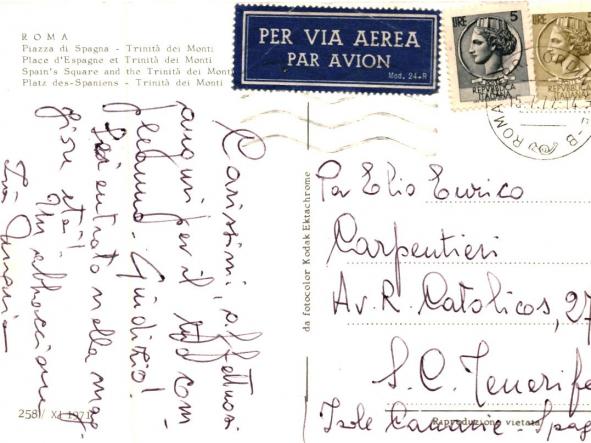 ROMA
Piazza di Spagna - Trinità dei Monti
Place d'Espagne et Trinità dei Monti
Spain's Square and the Trinità dei Monti
Platz des-Spaniens - Trinità dei Monti
PER VIA AEREA
PAR AVION
Mod. 24-R
LIRE 5
REPVBBLICA
ITALIANA
LIRE
REPVBBLICA
ITALIANA
ROMA
Carissimi, affettuosi
auguri per il
com-
pleanno. Giudizio!
Sei entrato nella mag-
giore età!
Un abbraccione
Zia
da fotocolor Kodak Ektachrome
Per Elio Enrico
Carpentieri
Av. R. Catolicos, 27
S. C. Tenerife
Isole Canarie - Spag
258 / XI 1971
Reproduzione vietata